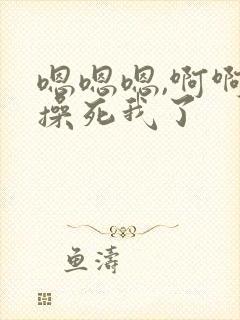 嗯嗯嗯,啊啊
操死我了
鱼涛